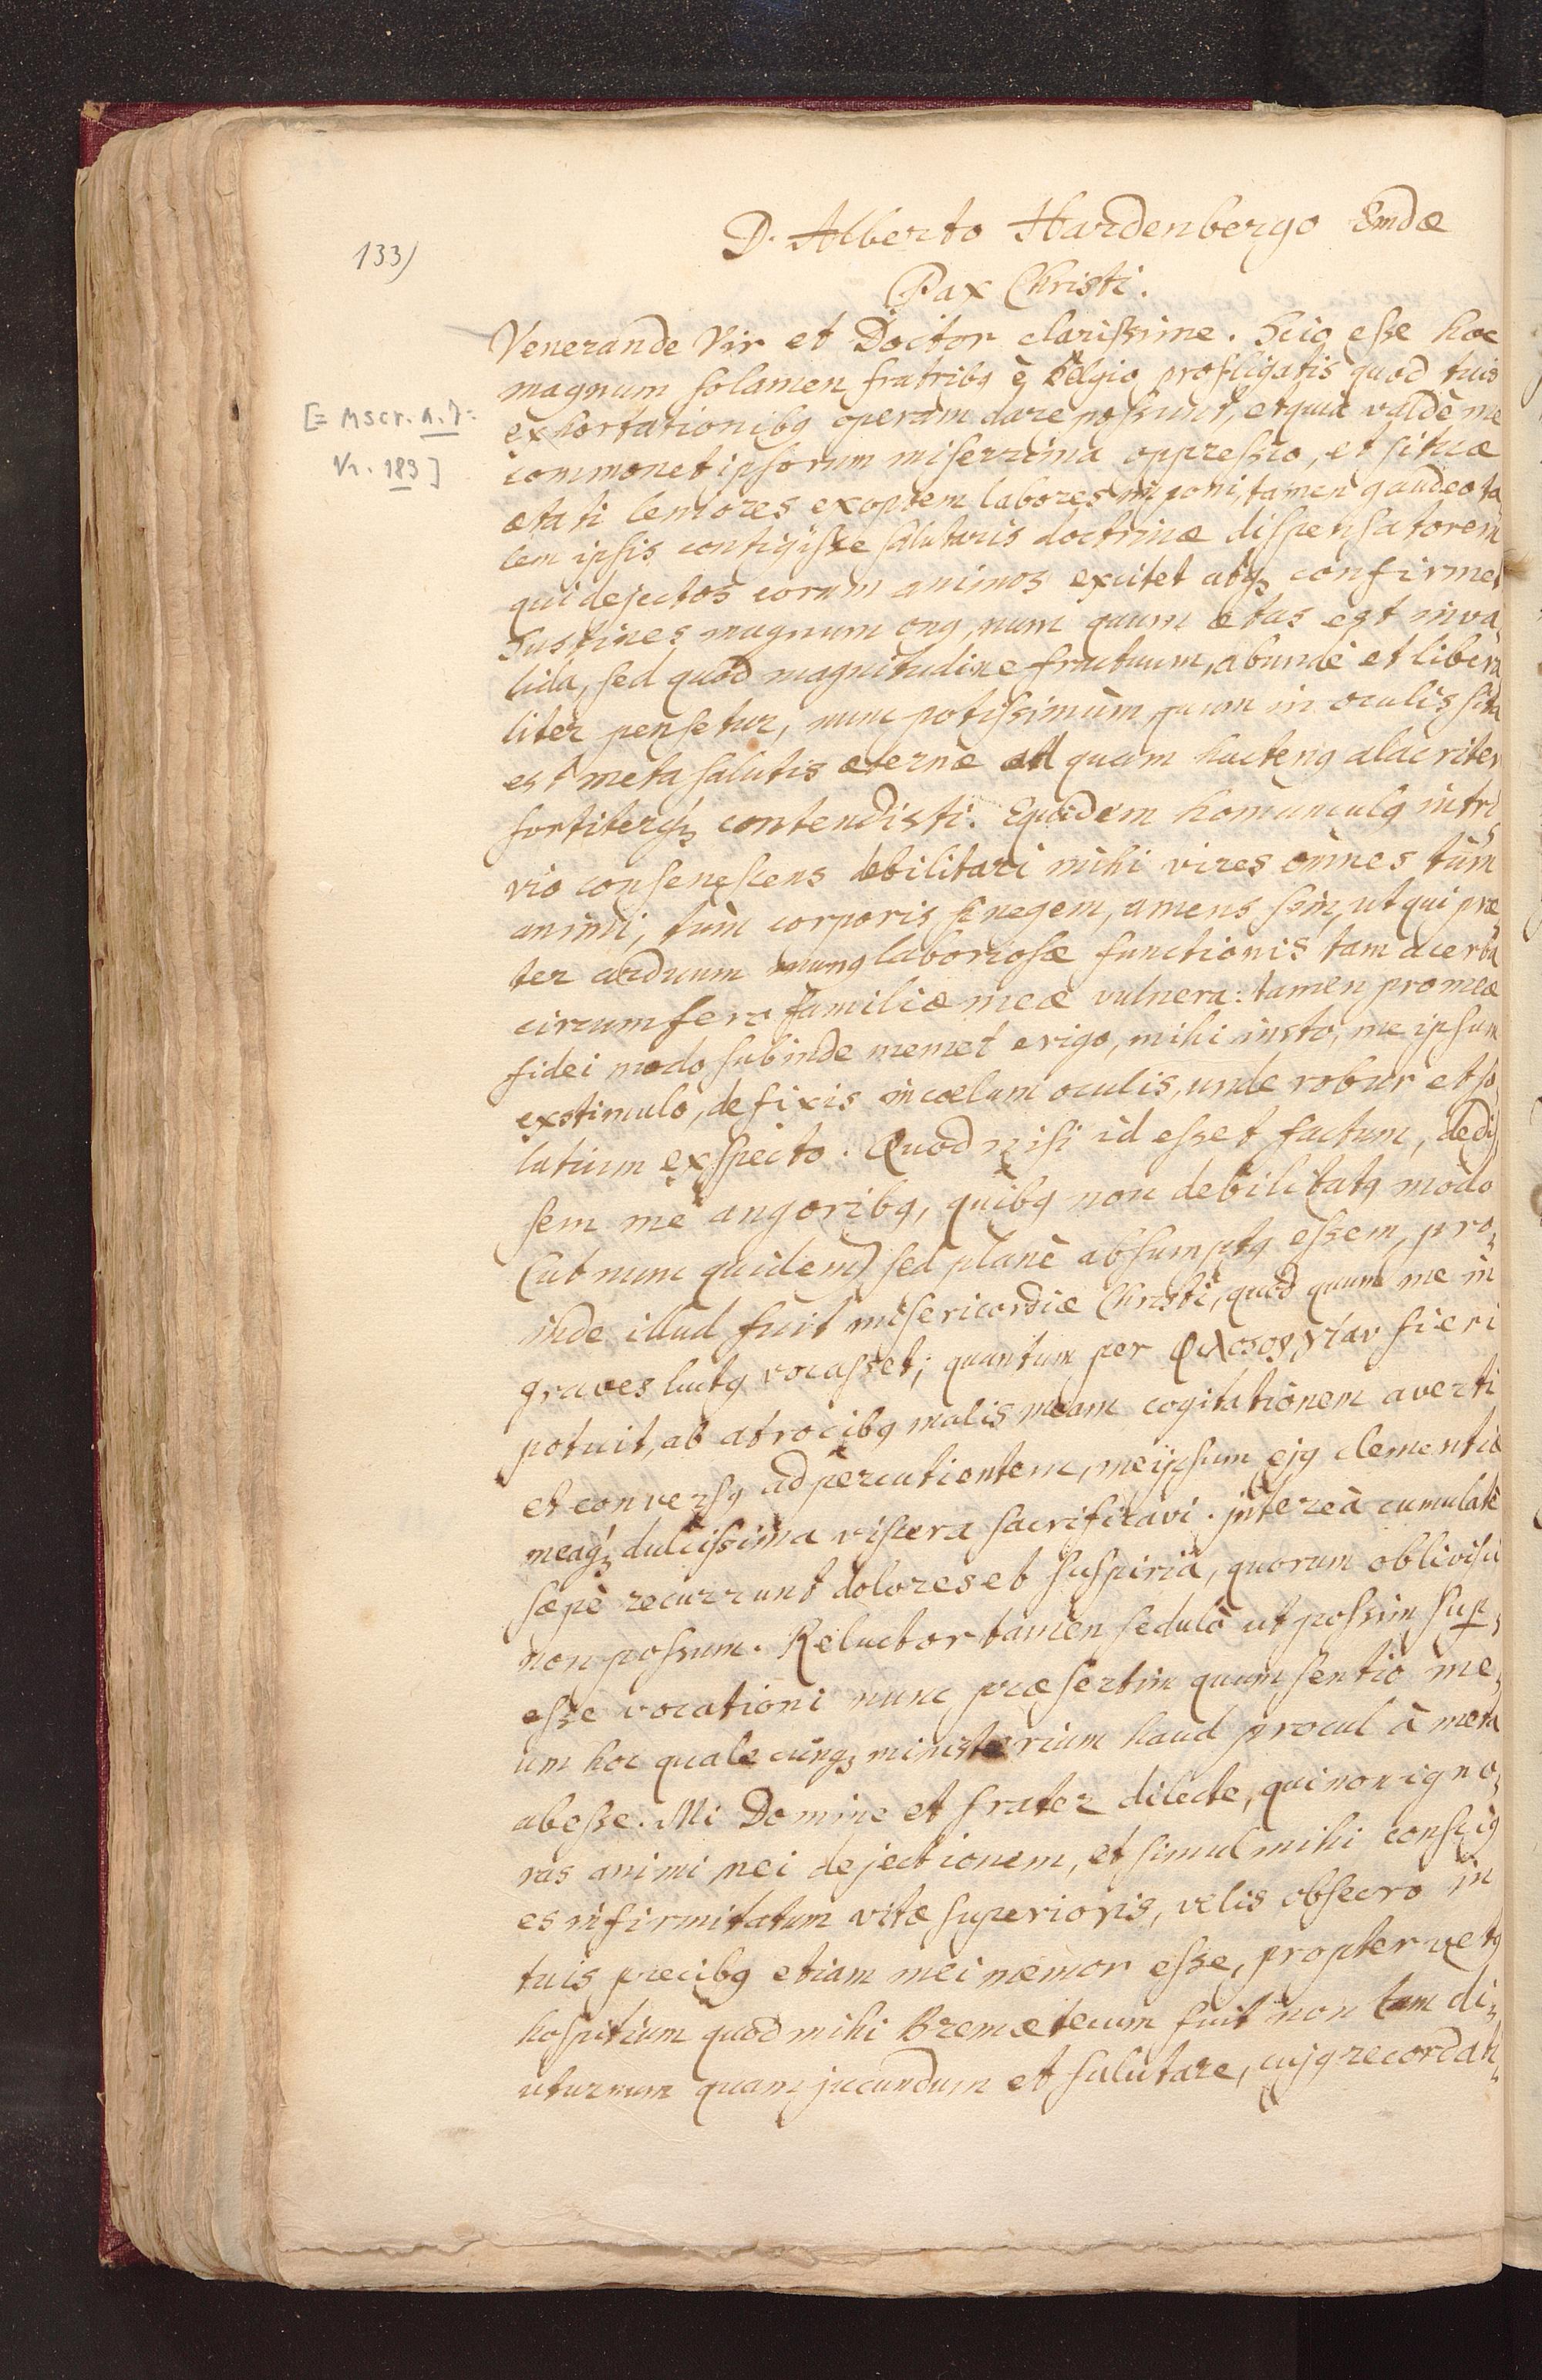 133)
D. Alberto Hardenbergo Emdæ
Pax Christi.
Venerande Vir et Doctor clarissime. Scio esse hoc
magnum solamen fratribq è Belgio profligatis quod tuis
[= Mscr. A. 7:
Nr. 183]
exhortationibq operam dare possunt, et quia valdè me
commonet ipsorum miserrima oppressio, et si tuæ
ætati leniores exoptem labores imponi, tamen gaudeo ta¬
lem ipsis contigisse salutaris doctrinæ dispensatorem
qui dejectos eorum animos excitet atqz confirmet
Sustines magnum onq, nam quum ætas est inva¬
lida, sed quod magnitudine fructuum, abundè et libera
liter pensetur, nunc potissimùm quum in oculis sita
est meta salutis æternæ ad quam hactenq alacriter
fortiterqz contendisti. Equidem homunculq in tri¬
vio consenescens debilitari mihi vires omnes tùm
animi, tùm corporis si negem, amens sim, ut qui præ
ter arduum munq laboriosæ functionis tam acerba
circumfero familiæ meæ vulnera: tamen pro meæ
fidei modo subinde memet erigo, mihi insto, me ipsum
exstimulo, defixis in cœlum oculis, unde robur et so¬
latium exspecto. Quod nisi id esset factum, dedis
sem me angoribq, quibq non debilitatq modo
(ut nunc quidem) sed planè absumptq essem, pro¬
inde illud fuit misericordiæ Christi, quod quum me in
graves luctq vocasset; quantum per φιλοσοργίαν fieri
potuit, ab atrocibq malis meam cogitationem averti
et conversq ad percutientem, meipsum ejq clementiæ
meaqz dulcissima viscera sacrificavi. Intereà cumulatè
sæpè recurrunt dolores et suspiria, quorum oblivisci
non possum. Reluctor tamen sedulò ut possim sup¬
esse vocationi nunc præsertim quum sentio me¬
um hoc qualecunqz ministerium haud procul à meta
abesse. Mi Domine et frater dilecte, qui non igno¬
ras animi mei dejectionem, et simul mihi consciq
es infirmitatum vitæ superioris, velis obsecro in
tuis precibq etiam mei memor esse, propter vetq
hospitium quod mihi Bremæ tecum fuit non tam di¬
uturnum quam jucundum et salutare, cujq recordati¬